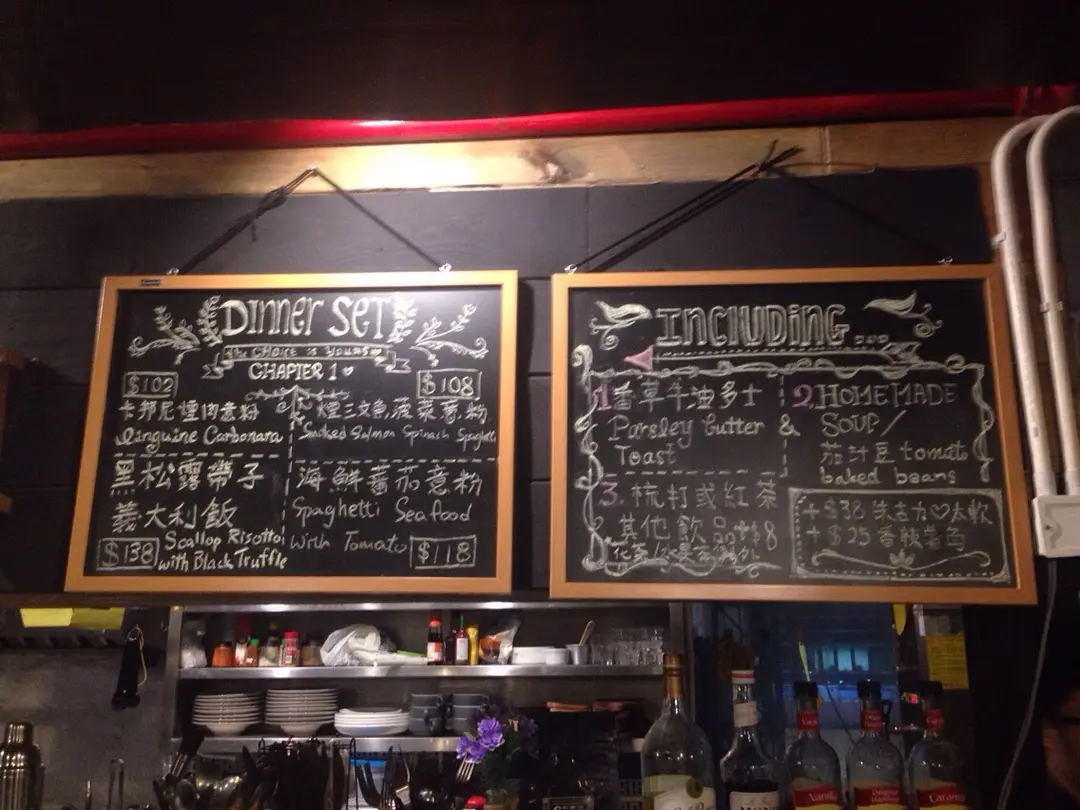 DINNER SET
the CHOICE is YOURS
CHAPTER 1 ♥
$102
卡邦尼煙肉意粉
Linguine Carbonara
$108
煙三文魚菠菜意粉
Smoked Salmon Spinach Spaghetti
黑松露帶子
義大利飯
$138 Scallop Risotto
with Black Truffle
海鮮蕃茄意粉
Spaghetti Seafood
with Tomato $118
INCLUDING...
1 香草牛油多士
Parsley butter &
Toast
2. HOMEMADE
SOUP/
茄汁豆 tomato
baked beans
3. 梳打或紅茶
其他飲品+$8
花茶/水果茶
+$38 朱古力♡太軟
+$25 薯角
Vanilla
Caramel